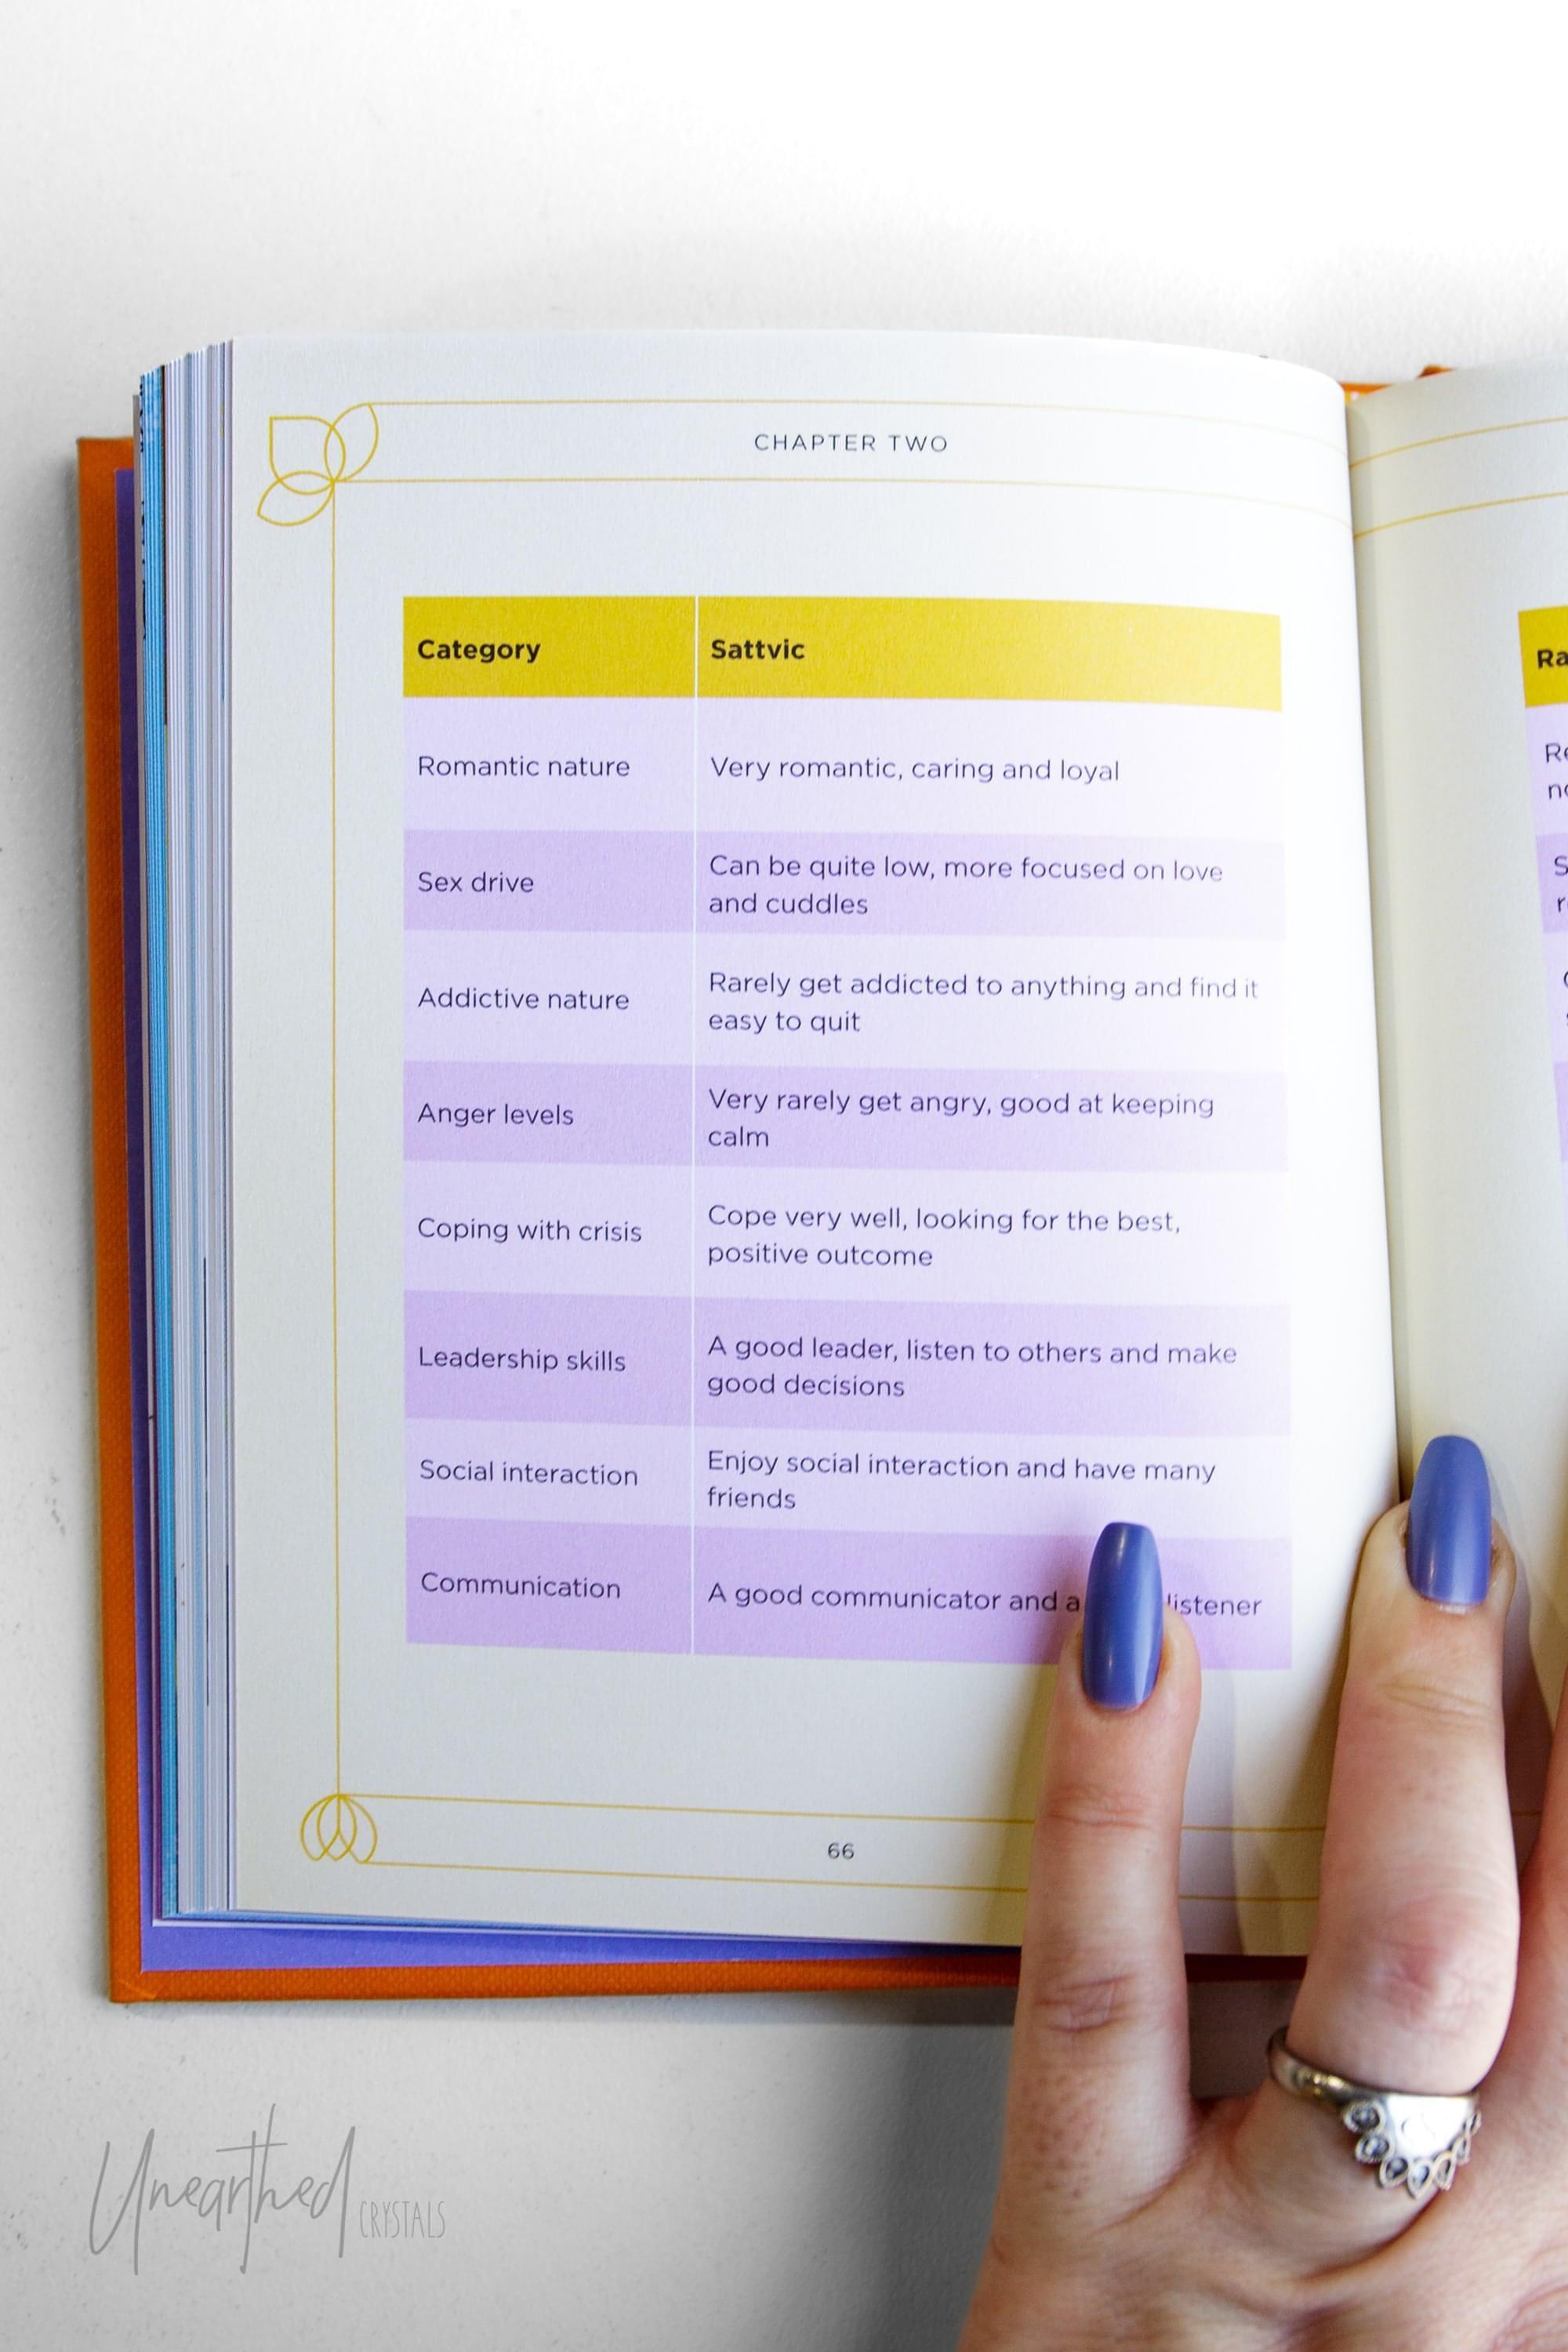 CHAPTER TWO
Category
Sattvic
Romantic nature
Very romantic, caring and loyal
Sex drive
Can be quite low, more focused on love
and cuddles
Addictive nature
Rarely get addicted to anything and find it
easy to quit
Anger levels
Very rarely get angry, good at keeping
calm
Coping with crisis
Cope very well, looking for the best,
positive outcome
Leadership skills
A good leader, listen to others and make
good decisions
Social interaction
Enjoy social interaction and have many
friends
Communication
A good communicator and a listener
66
Unearthed CRYSTALS